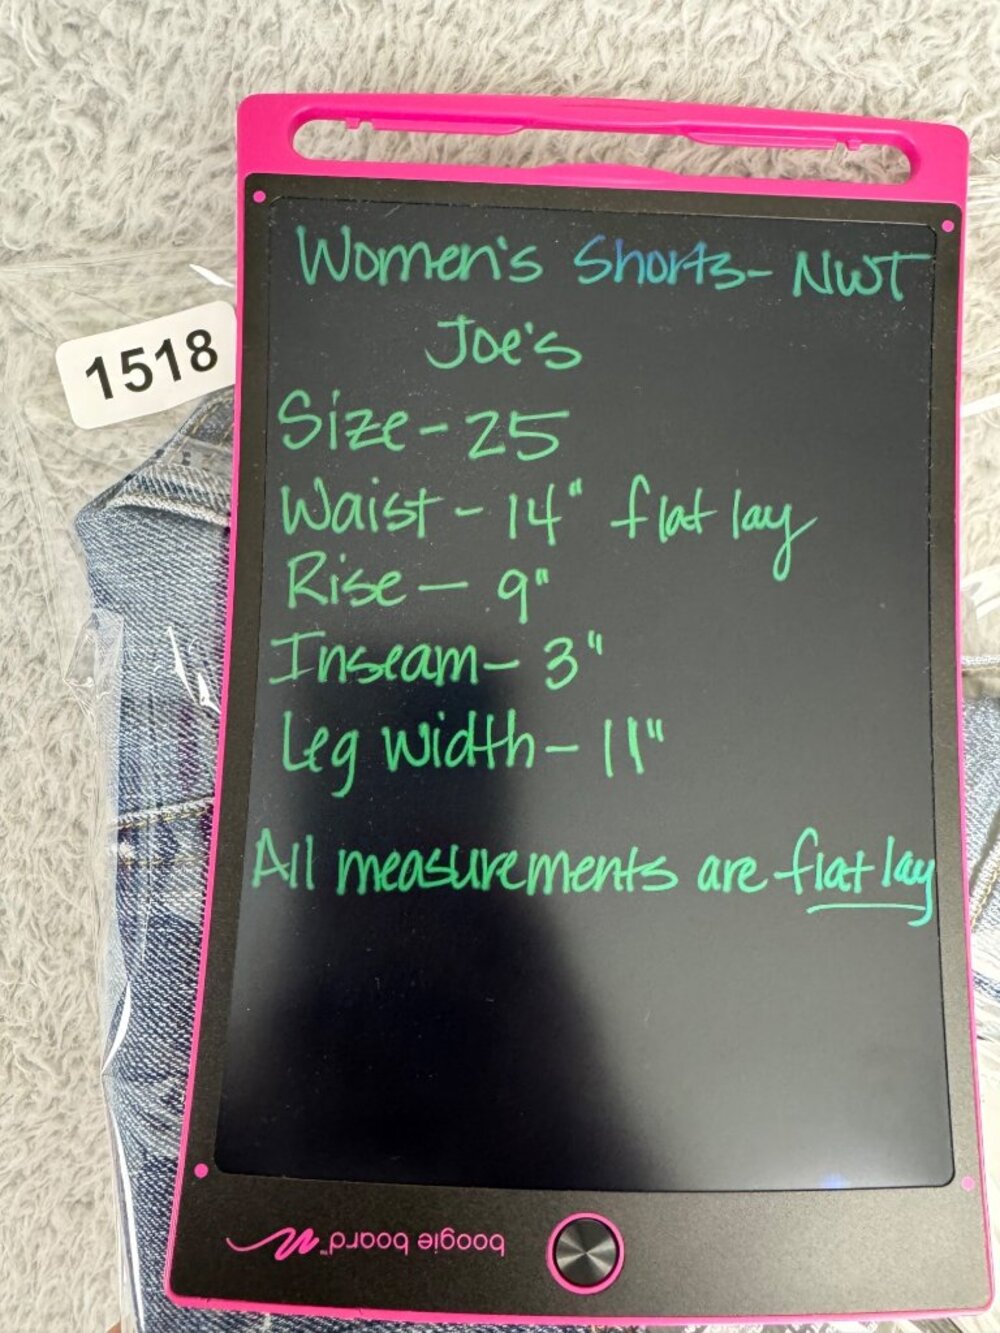 Women's Shorts- NWT
Joe's
1518
Size- 25
Waist - 14" flat lay
Rise - 9"
Inseam- 3"
Leg Width- 11"
All measurements are flat lay
boogie board™